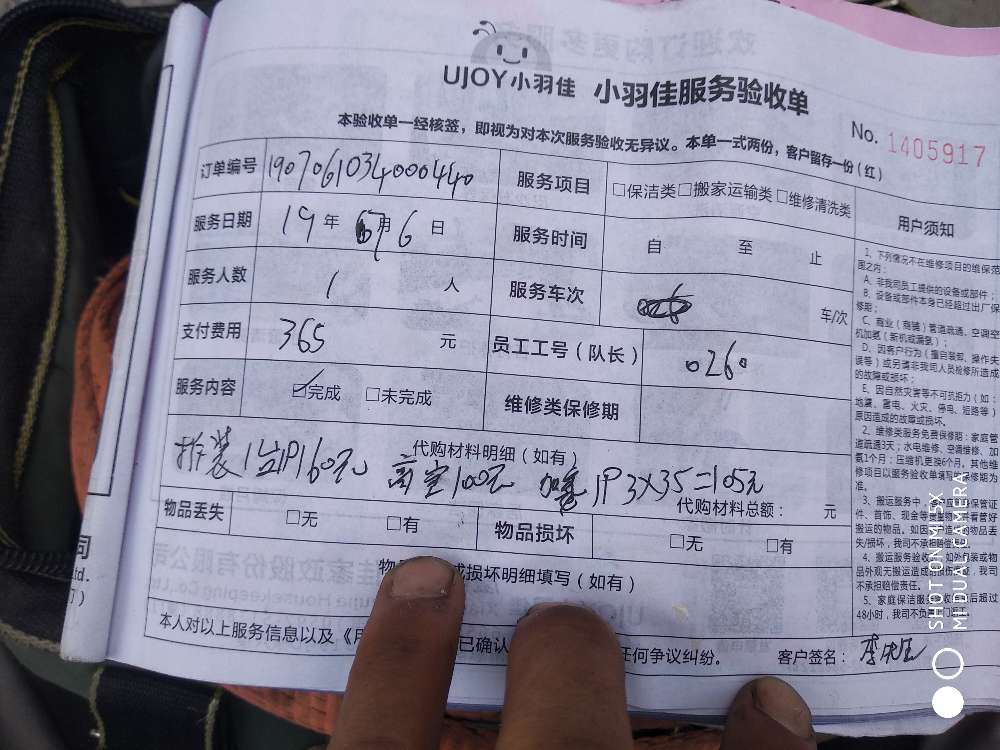 UJOY小羽佳 小羽佳服务验收单
本验收单一经核签，即视为对本次服务验收无异议。本单一式两份，客户留存一份（红）
No. 1405917
订单编号 190706103400440 服务项目 □保洁类 □搬家运输类 □维修清洗类
服务日期 19年 7月6日 服务时间 自 至 止
服务人数 1 人 服务车次 车/次
支付费用 365 元 员工工号（队长） 0260
服务内容 ☑完成 □未完成 维修类保修期
代购材料明细（如有）
拆装1台1P160元 高空100元 加氨1P3X35=105元
代购材料总额： 元
物品丢失 □无 □有 物品损坏 □无 □有
成损坏明细填写（如有）
本人对以上服务信息以及《用 已确认 任何争议纠纷。 客户签名：
用户须知
1、下列情况不在维修项目的维保范
围之内：
A、非我司员工提供的设备或部件；
B、设备或部件本身已经超过出厂保
修期；
C、商业（商铺）管道疏通、空调空
机加氨（新机或漏氨）；
D、因客户行为（擅自装卸、操作失
误等）或另请非我司人员检修所造成
的故障或损坏；
E、因自然灾害等不可抗拒力（如：
地震、雷电、火灾、停电、短路等）
原因造成的故障或损坏。
2、维修类服务免费保修期：家庭管
道疏通3天；水电维修、空调维修、加
氨1个月；压缩机更换6个月，其他维
修项目以服务验收单填写的保修期为
准。
3、搬运服务中，客户应 保管证
件、首饰、现金等贵重物 看管好
搬运的物品。如因 造 的物品丢
失/损坏，我司不承担赔偿
4、搬运服务验收 如外包装或物
品外观无搬运造成的损伤 我司
不承担赔偿责任。
5、家庭保洁服务 收 后超过
48小时，我司不负
SHOT ON MI 5X
MI DUAL CAMERA
司
td.